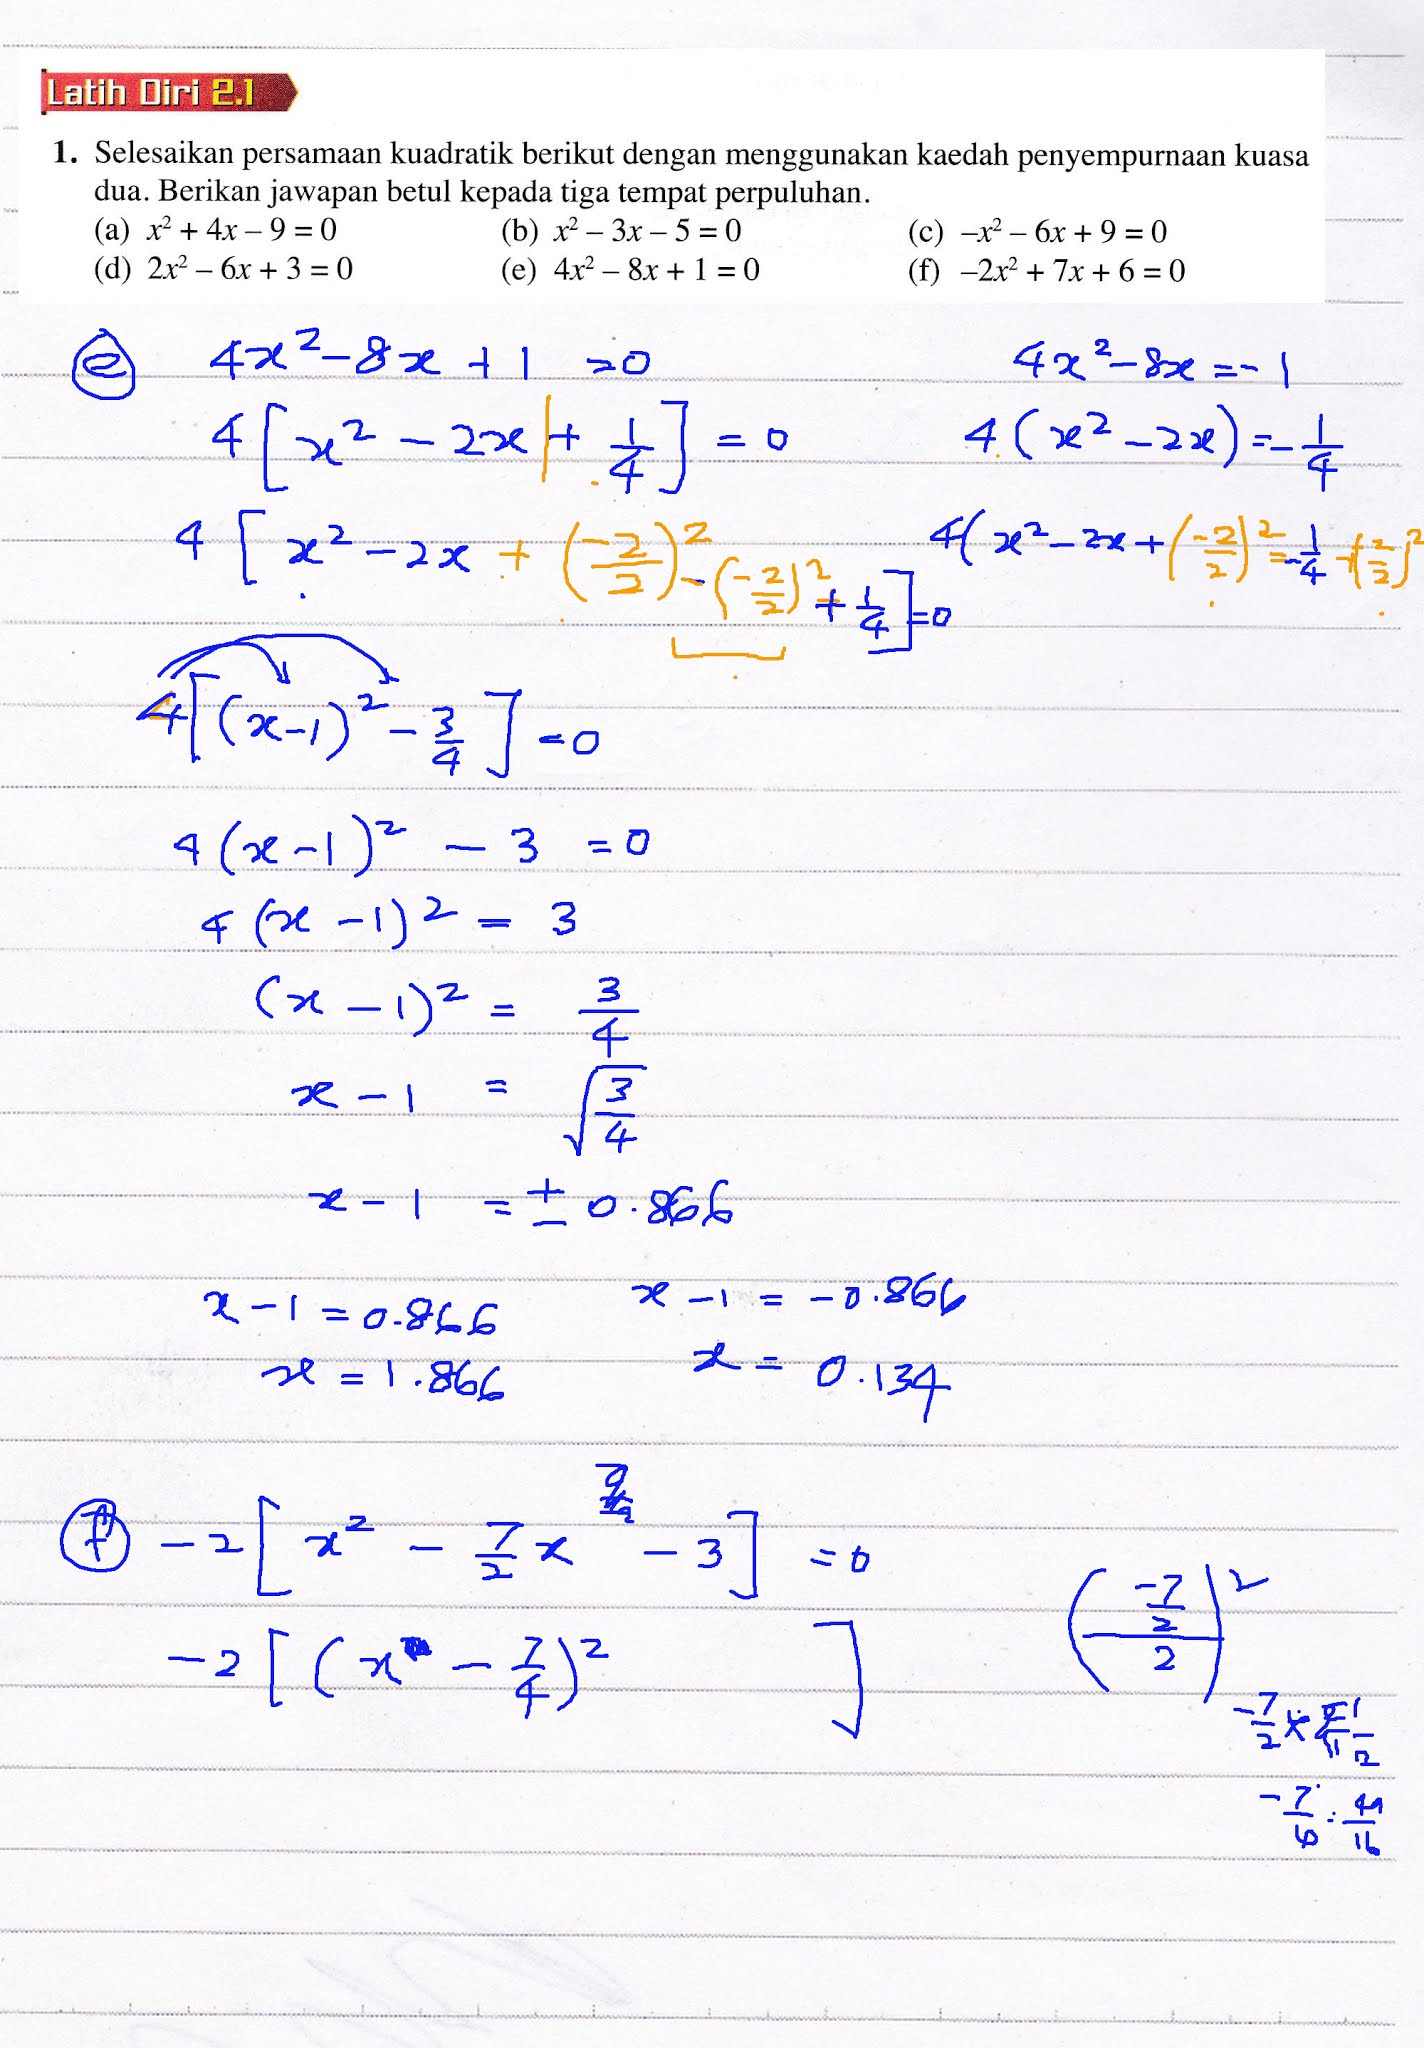 Latih Diri 2.1
1. Selesaikan persamaan kuadratik berikut dengan menggunakan kaedah penyempurnaan kuasa
dua. Berikan jawapan betul kepada tiga tempat perpuluhan.
(a) x² + 4x – 9 = 0 (b) x² – 3x – 5 = 0 (c) –x² – 6x + 9 = 0
(d) 2x² – 6x + 3 = 0 (e) 4x² – 8x + 1 = 0 (f) –2x² + 7x + 6 = 0
(e) 4x² - 8x + 1 = 0
4[x² - 2x + 1/4] = 0
4[x² - 2x + (-2/2)² - (-2/2)² + 1/4] = 0
4[(x-1)² - 3/4] = 0
4(x-1)² - 3 = 0
4(x-1)² = 3
(x-1)² = 3/4
x - 1 = √(3/4)
x - 1 = ± 0.866
x - 1 = 0.866 x - 1 = -0.866
x = 1.866 x = 0.134
4x² - 8x = -1
4(x² - 2x) = -1/4
4(x² - 2x + (-2/2)² = -1/4 + (2/2)²
(f) -2[x² - 7/2 x - 3] = 0
-2[(x - 7/4)² ]
((-7/2)/2)²
-7/2 × 1/2
49/16